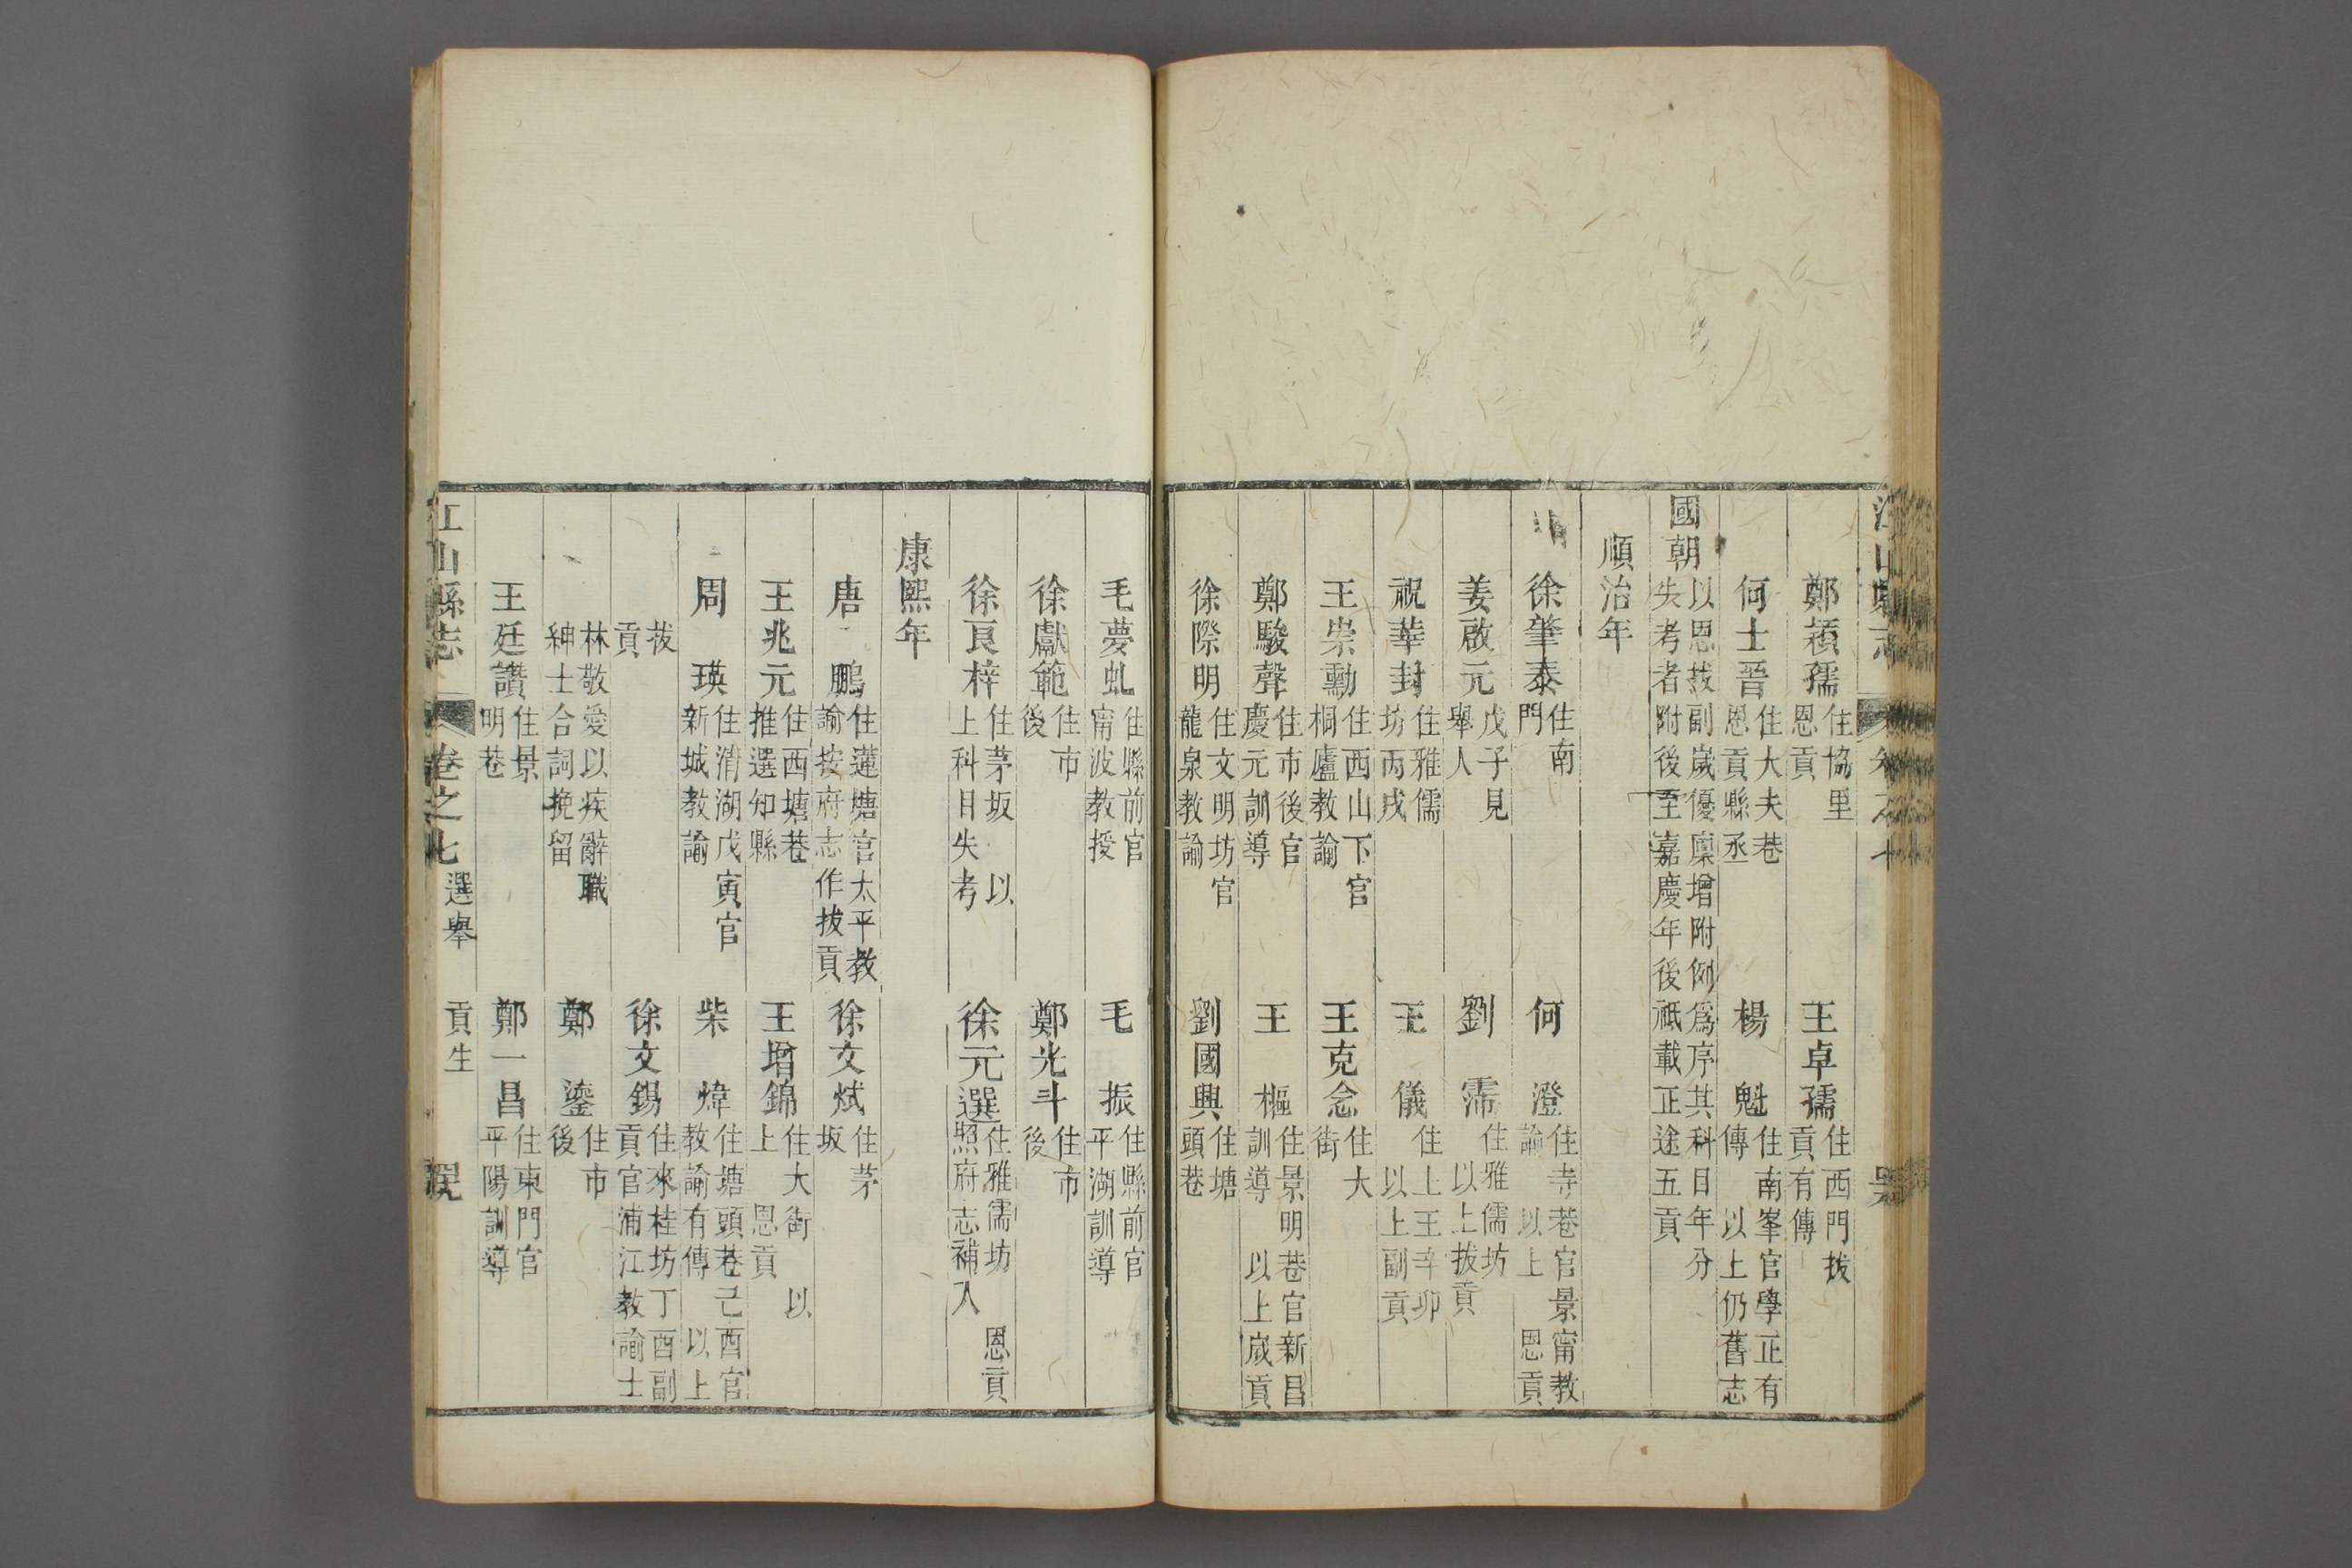 鄭穎孺住協里恩貢 王卓孺住西門拔貢有傳
何士晉住大夫巷恩貢縣丞 楊魁住南峯官學正有傳 以上仍舊志
國朝以恩拔副歲優廩增附例為序其科目年分失考者附後至嘉慶年後祇載正途五貢
順治年
徐肇泰住南門 何澄住寺巷官景甯教諭 以上恩貢
姜啟元戊子見舉人 劉霈住雅儒坊 以上拔貢
祝華封住雅儒坊丙戌 王儀住上王辛卯 以上副貢
王崇勳住西山下官桐廬教諭 王克念住大街
鄭駿聲住市後官慶元訓導 王樞住景明巷官新昌訓導 以上歲貢
徐際明住文明坊官龍泉教諭 劉國興住塘頭巷
毛夢虬住縣前官甯波教授 毛振住縣前官平湖訓導
徐獻範住市後 鄭光斗住市後
徐良梓住茅坂 以上科目失考 徐元選住雅儒坊 恩貢照府志補入
康熙年
唐鵬住蓮塘官太平教諭按府志作拔貢 徐文烒住茅坂
王兆元住西塘巷推選知縣 王增錦住大街 以上恩貢
周瑛住清湖戊寅官新城教諭 柴煒住塘頭巷己酉官教諭有傳 以上
拔貢 徐文錫住來桂坊丁酉副貢官浦江教諭士
林敬愛以疾辭職紳士合詞挽留 鄭鎏住市後
王廷讚住景明巷 鄭一昌住東門官平陽訓導
江山縣志 卷之七 選舉 貢生